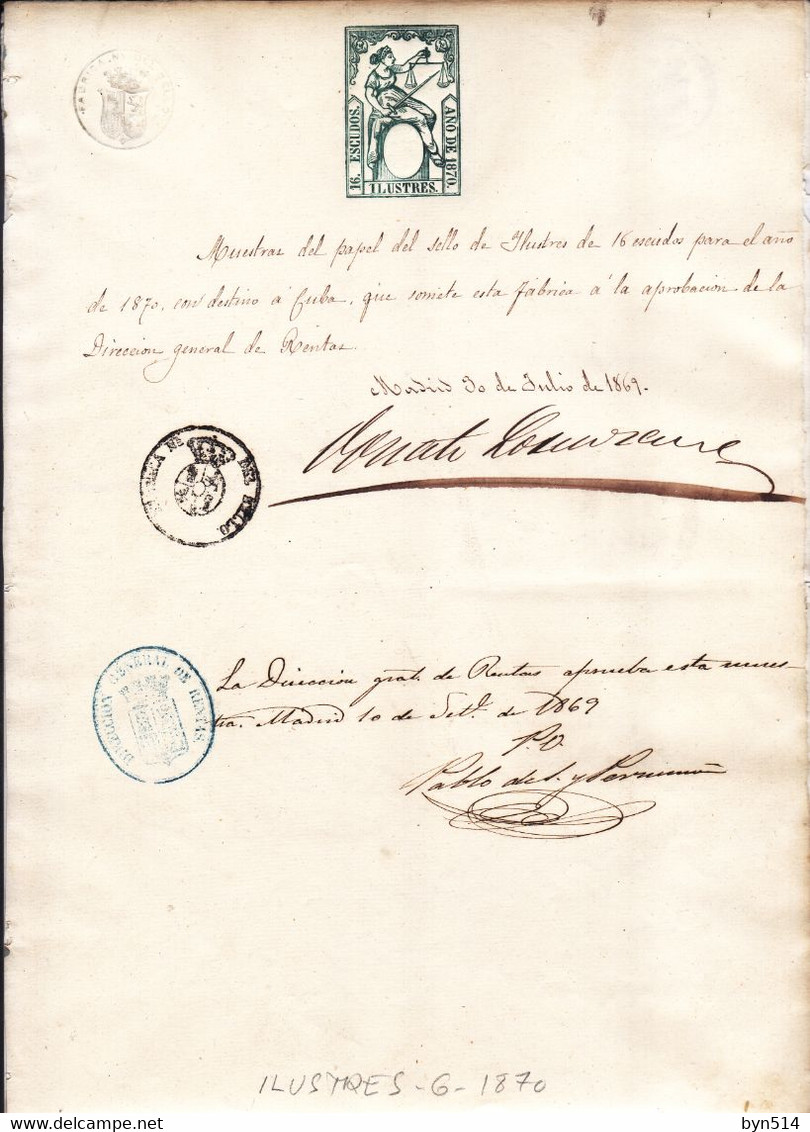 16. ESCUDOS.
AÑO DE 1870.
ILUSTRES.
Muestras del papel del sello de Ilustres de 16 escudos para el año
de 1870, con destino á Cuba, que somete esta fábrica á la aprobacion de la
Direccion general de Rentas.
Madrid 30 de Julio de 1869.
DEL SELLO.
DIRECCION GENERAL DE RENTAS
La Direccion gral. de Rentas aprueba esta mues-
tra. Madrid 10 de Set.e de 1869
P.O.
Pablo de S. y
ILUSTRES - 6 - 1870
byn514